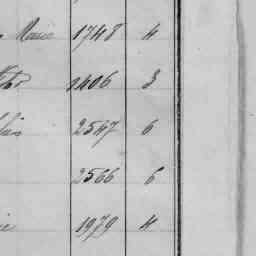 Marie 1748 4
1406 3
2547 6
2566 6
1979 4